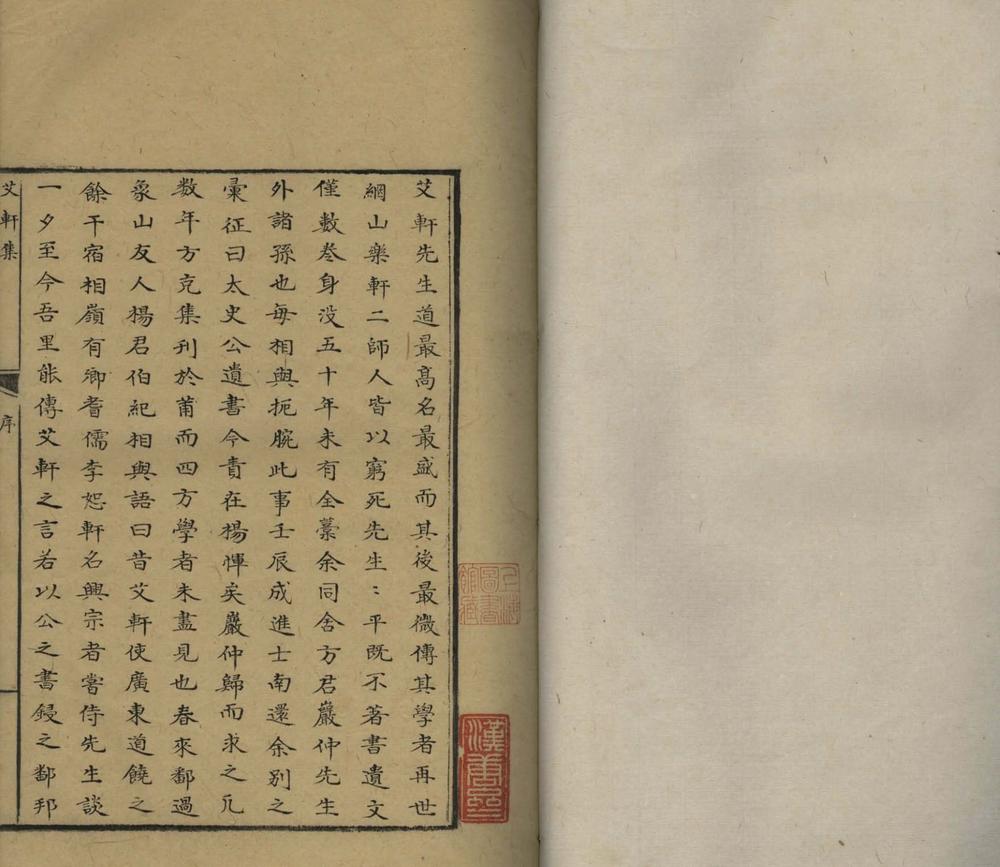 艾軒先生道最高名最盛而其後最微傳其學者再世
綱山樂軒二師人皆以窮死先生〻平既不著書遺文
僅數卷身没五十年未有全藁余同舍方君巖仲先生
外諸孫也每相與扼腕此事壬辰成進士南還余别之
彙征曰太史公遺書今責在楊惲矣巖仲歸而求之凡
数年方克集刊於莆而四方學者未盡見也春來鄱過
象山友人楊君伯紀相與語曰昔艾軒使廣東道饒之
餘干宿相嶺有卿耆儒李恕軒名興宗者嘗侍先生談
一夕至今吾里能傳艾軒之言若以公之書鋟之鄱邦
艾軒集
序
上海圖書館藏
漢唐齋